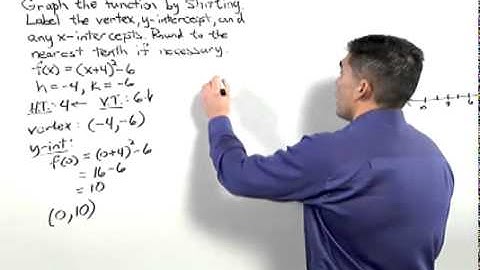 Graph the function by Shifting.
Label the vertex, y-intercept, and
any x-intercepts. Round to the
nearest tenth if necessary.
f(x) = (x+4)²-6
h = -4, k = -6
H.T: 4 ← V.T: 6 ↓
vertex: (-4, -6)
y-int:
f(0) = (0+4)²-6
= 16-6
= 10
(0, 10)